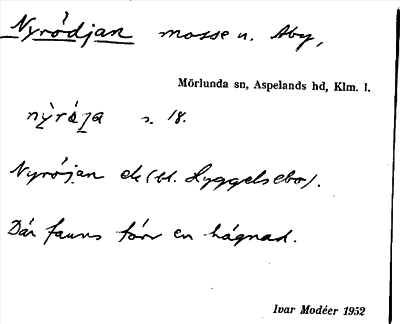 Nyrödjan mosse u. Aby,
Mörlunda sn, Aspelands hd, Klm. l.
s. 18.
Nyröjan ek (bl. Hyggelsebo).
Där fanns förr en hägnad.
Ivar Modéer 1952